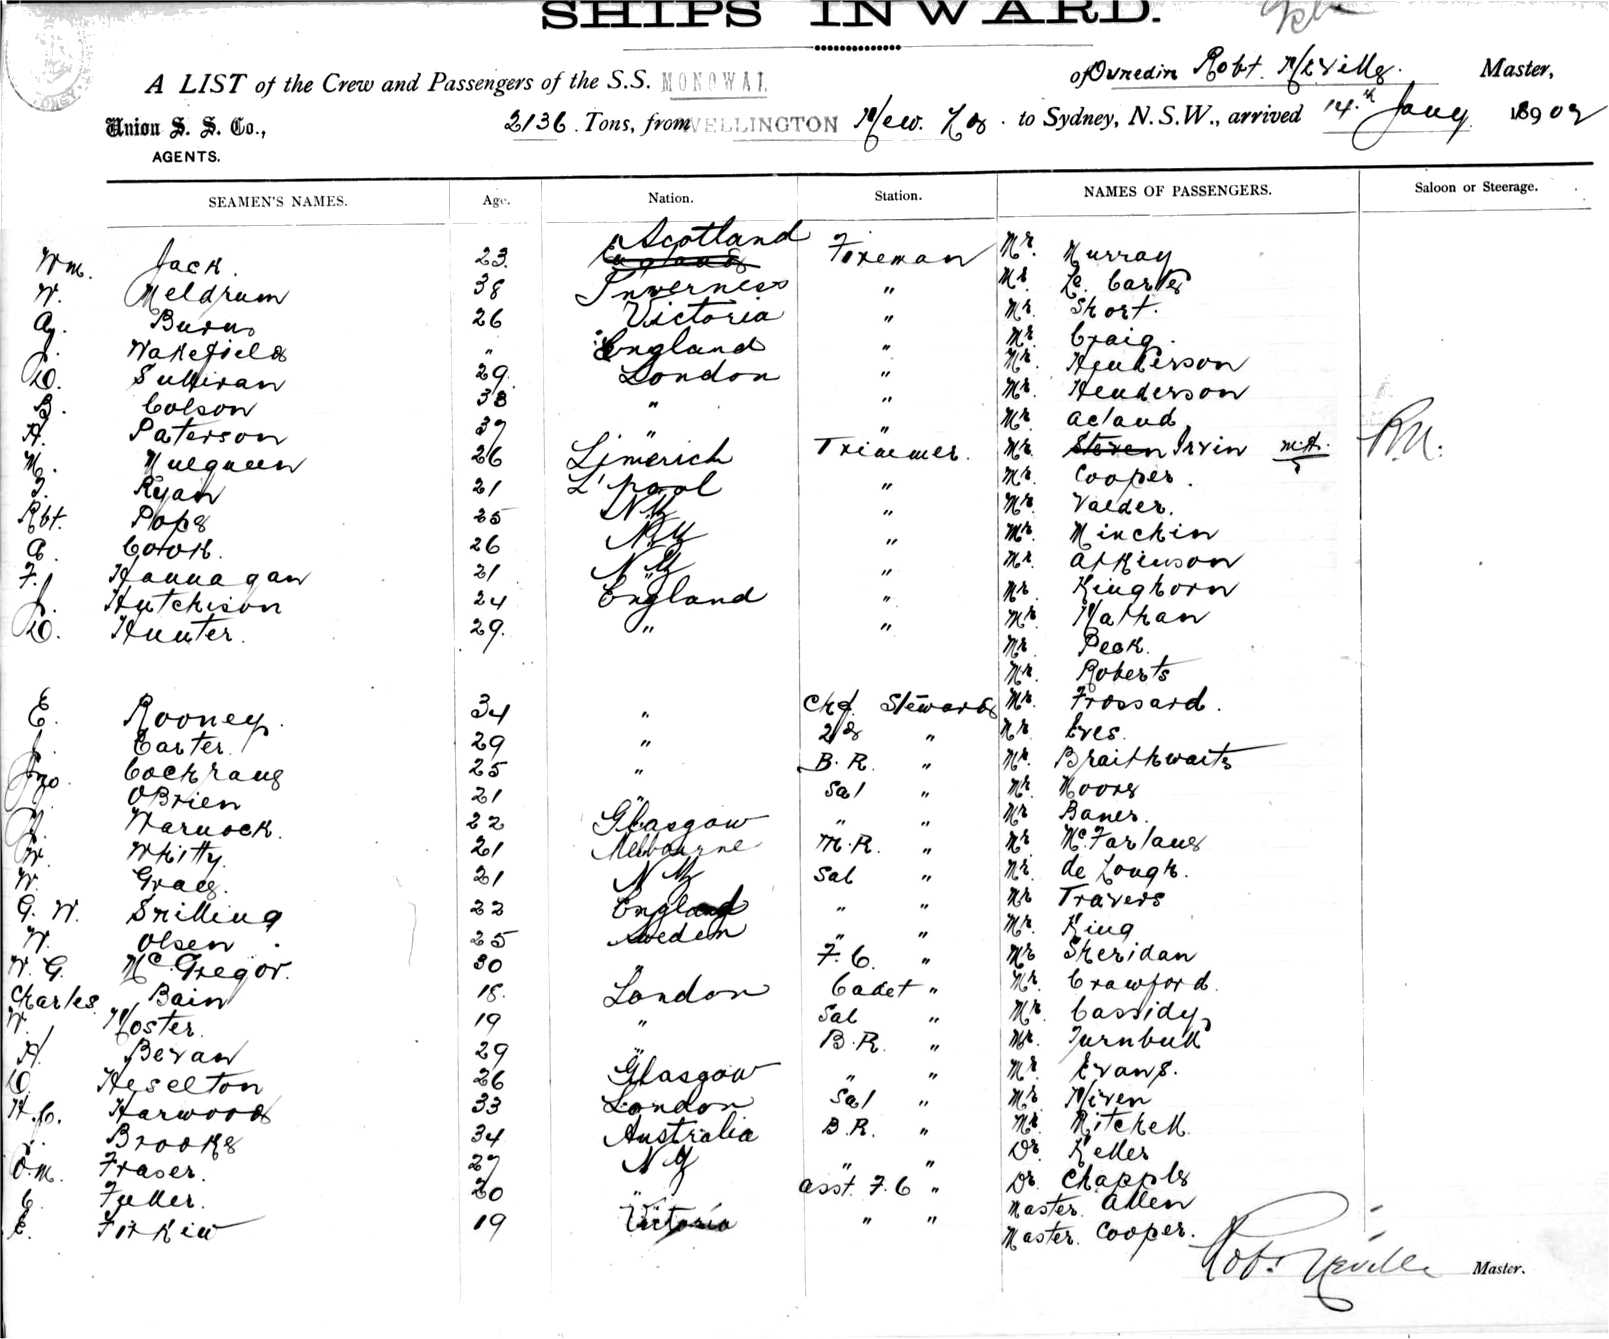 SHIPS INWARD.
A LIST of the Crew and Passengers of the S.S. MONOWAI of Dunedin Robt. Neville. Master,
Union S. S. Co., 2136. Tons, from WELLINGTON New. Zea. to Sydney, N.S.W., arrived 14.th Jany 1890 02
AGENTS.
SEAMEN'S NAMES. Age. Nation. Station. NAMES OF PASSENGERS. Saloon or Steerage.
Wm. Jack. 23. Scotland Fireman Mr. Murray
W. Meldrum 38 Inverness " Mr. Le Carte
A. Burns 26 Victoria " Mr. Short.
J. Wakefield " England " Mr. Craig.
D. Sullivan 29. London " Mr. Henderson
B. Colson 38 " " Mr. Henderson
H. Paterson 37 " " Mr. Acland
M. Mulqueen 26 Limerick Trimmer. Mr. Steven Irvin
Ryan 21 L'pool " Mr. Cooper.
Rbt. Pope 25 NZ " Mr. Valder.
A. Cook. 26 NZ " Mr. Minchin
F. Hannagan 21 NZ " Mr. Atkinson
J. Hutchison 24 England " Mr. Kinghorn
D. Hunter. 29. " " Mr. Nathan
Mr. Peck.
Mr. Roberts
E. Rooney. 34 " Chf. Steward Mr. Frossard.
J. Carter. 29 " 2d " Mr. Eves.
Jno. Cockrane 25 " B.R. " Mr. Braithwaite
OBrien 21 " Sal " Mr. Moore
Warnock. 22 Glasgow " " Mr. Baner.
W. Whitty. 21 Melbourne M.R. " Mr. McFarlane
W. Grace. 21 NZ Sal " Mr. de Lough.
G. W. Snilling 22 England " " Mr. Travers
W. Olsen 25 Sweden " " Mr. King
W. G. McGregor. 30 " F.C. " Mr. Sheridan
Charles Bain 18. London Cadet " Mr. Crawford.
W. Noster. 19 " Sal " Mr. Cassidy
H. Bevan 29 " B.R. " Mr. Turnbull
D. Heselton 26 Glasgow " " Mr. Evans.
H.C. Harwood 33 London Sal " Mr. Niven
J. Brooke 34 Australia B.R. " Mr. Mitchell
O.M. Fraser. 27 NZ " " Dr. Keller
C. Fuller. 20 " asst. F.C " Dr. Chapple
E. Firkin 19 Victoria " " Master. Allen
Master. Cooper.
Robt Neville Master.